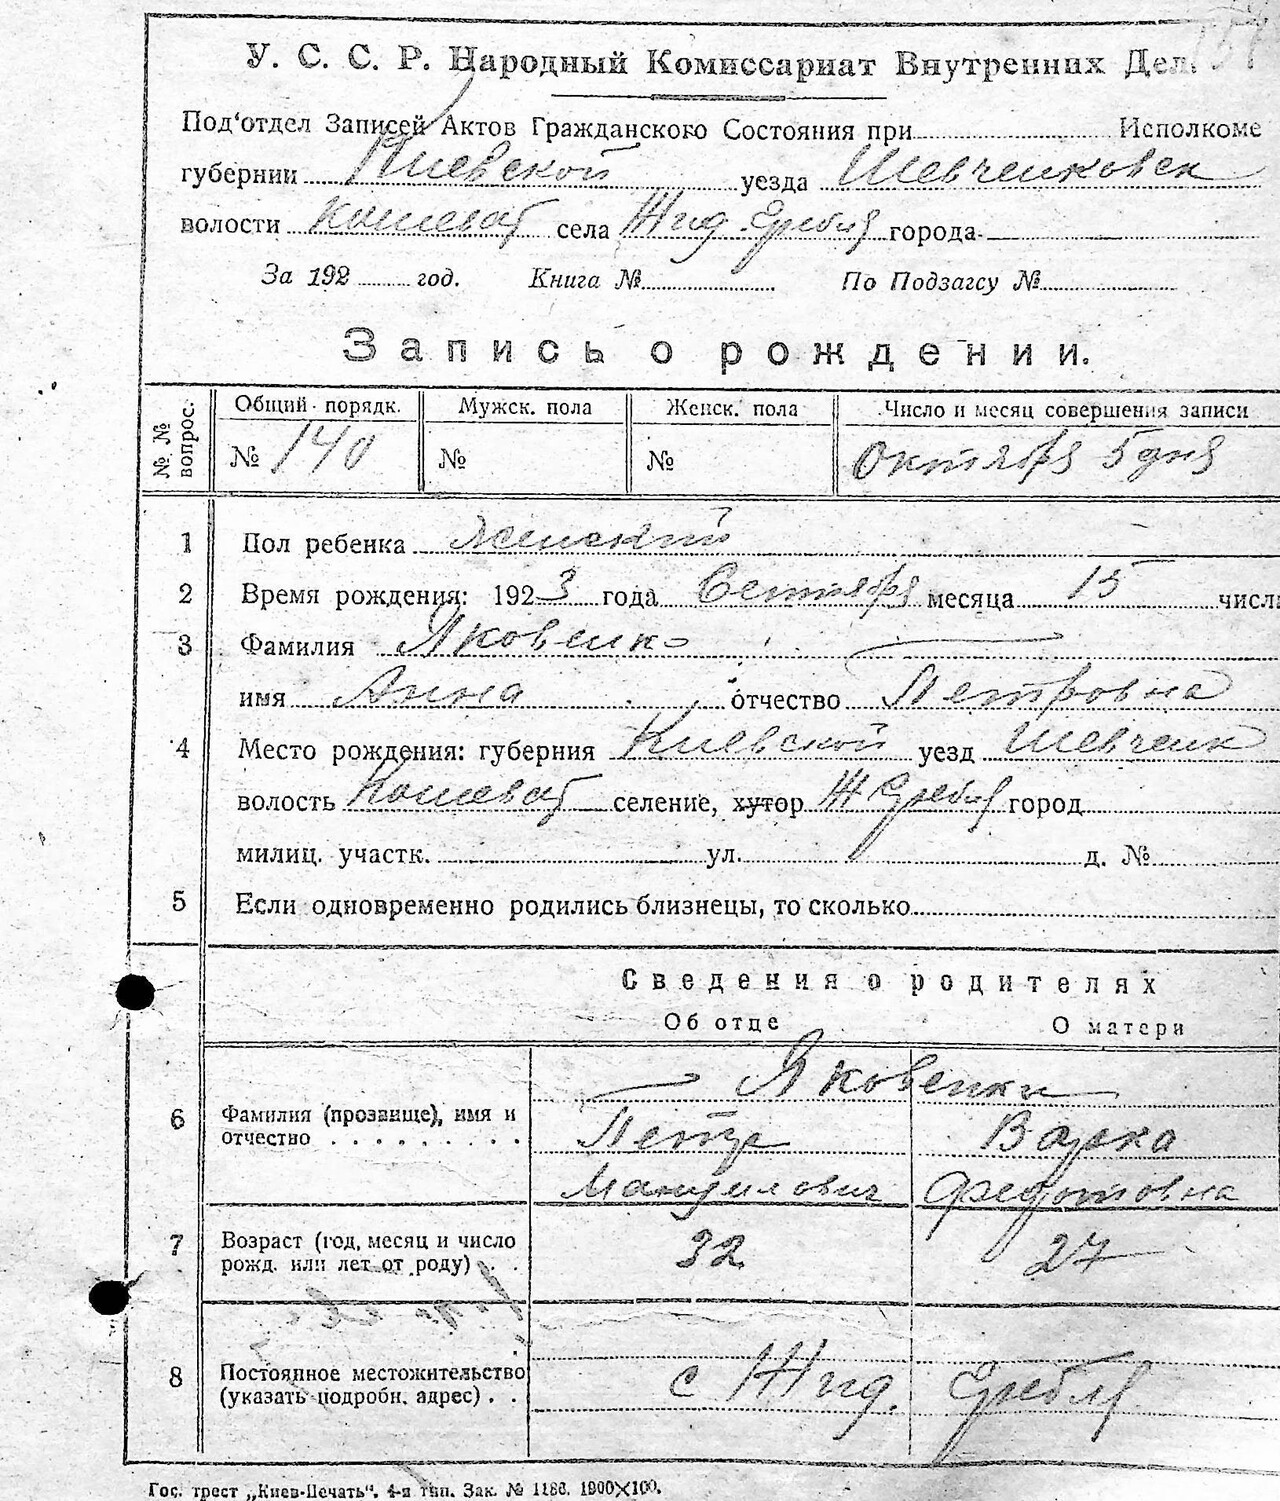 У. С. С. Р. Народный Комиссариат Внутренних Дел.
Под'отдел Записей Актов Гражданского Состояния при Исполкоме
губернии Киевской уезда Шевченковск
волости Кошеват села Жид. Гребля города
За 192 год. Книга № По Подзагсу №
Запись о рождении.
№ № вопрос. Общий порядк. Мужск. пола Женск. пола Число и месяц совершения записи
№ 140 № № Октября 5 дня
1 Пол ребенка Женский
2 Время рождения: 1923 года Сентября месяца 15 числ
3 Фамилия Яковенко
имя Анна отчество Петровна
4 Место рождения: губерния Киевской уезд Шевченк
волость Кошеват селение, хутор Ж Гребля город
милиц. участк. ул. д. №
5 Если одновременно родились близнецы, то сколько
Сведения о родителях
Об отце О матери
Яковенки
6 Фамилия (прозвище), имя и отчество Петр Варка
Мануилович Федотовна
7 Возраст (год, месяц и число рожд. или лет от роду) 32 27
8 Постоянное местожительство (указать подробн. адрес) с Жид. Гребля
Гос. трест „Киев-Печать“. 4-я тип. Зак. № 1186. 1900×100.